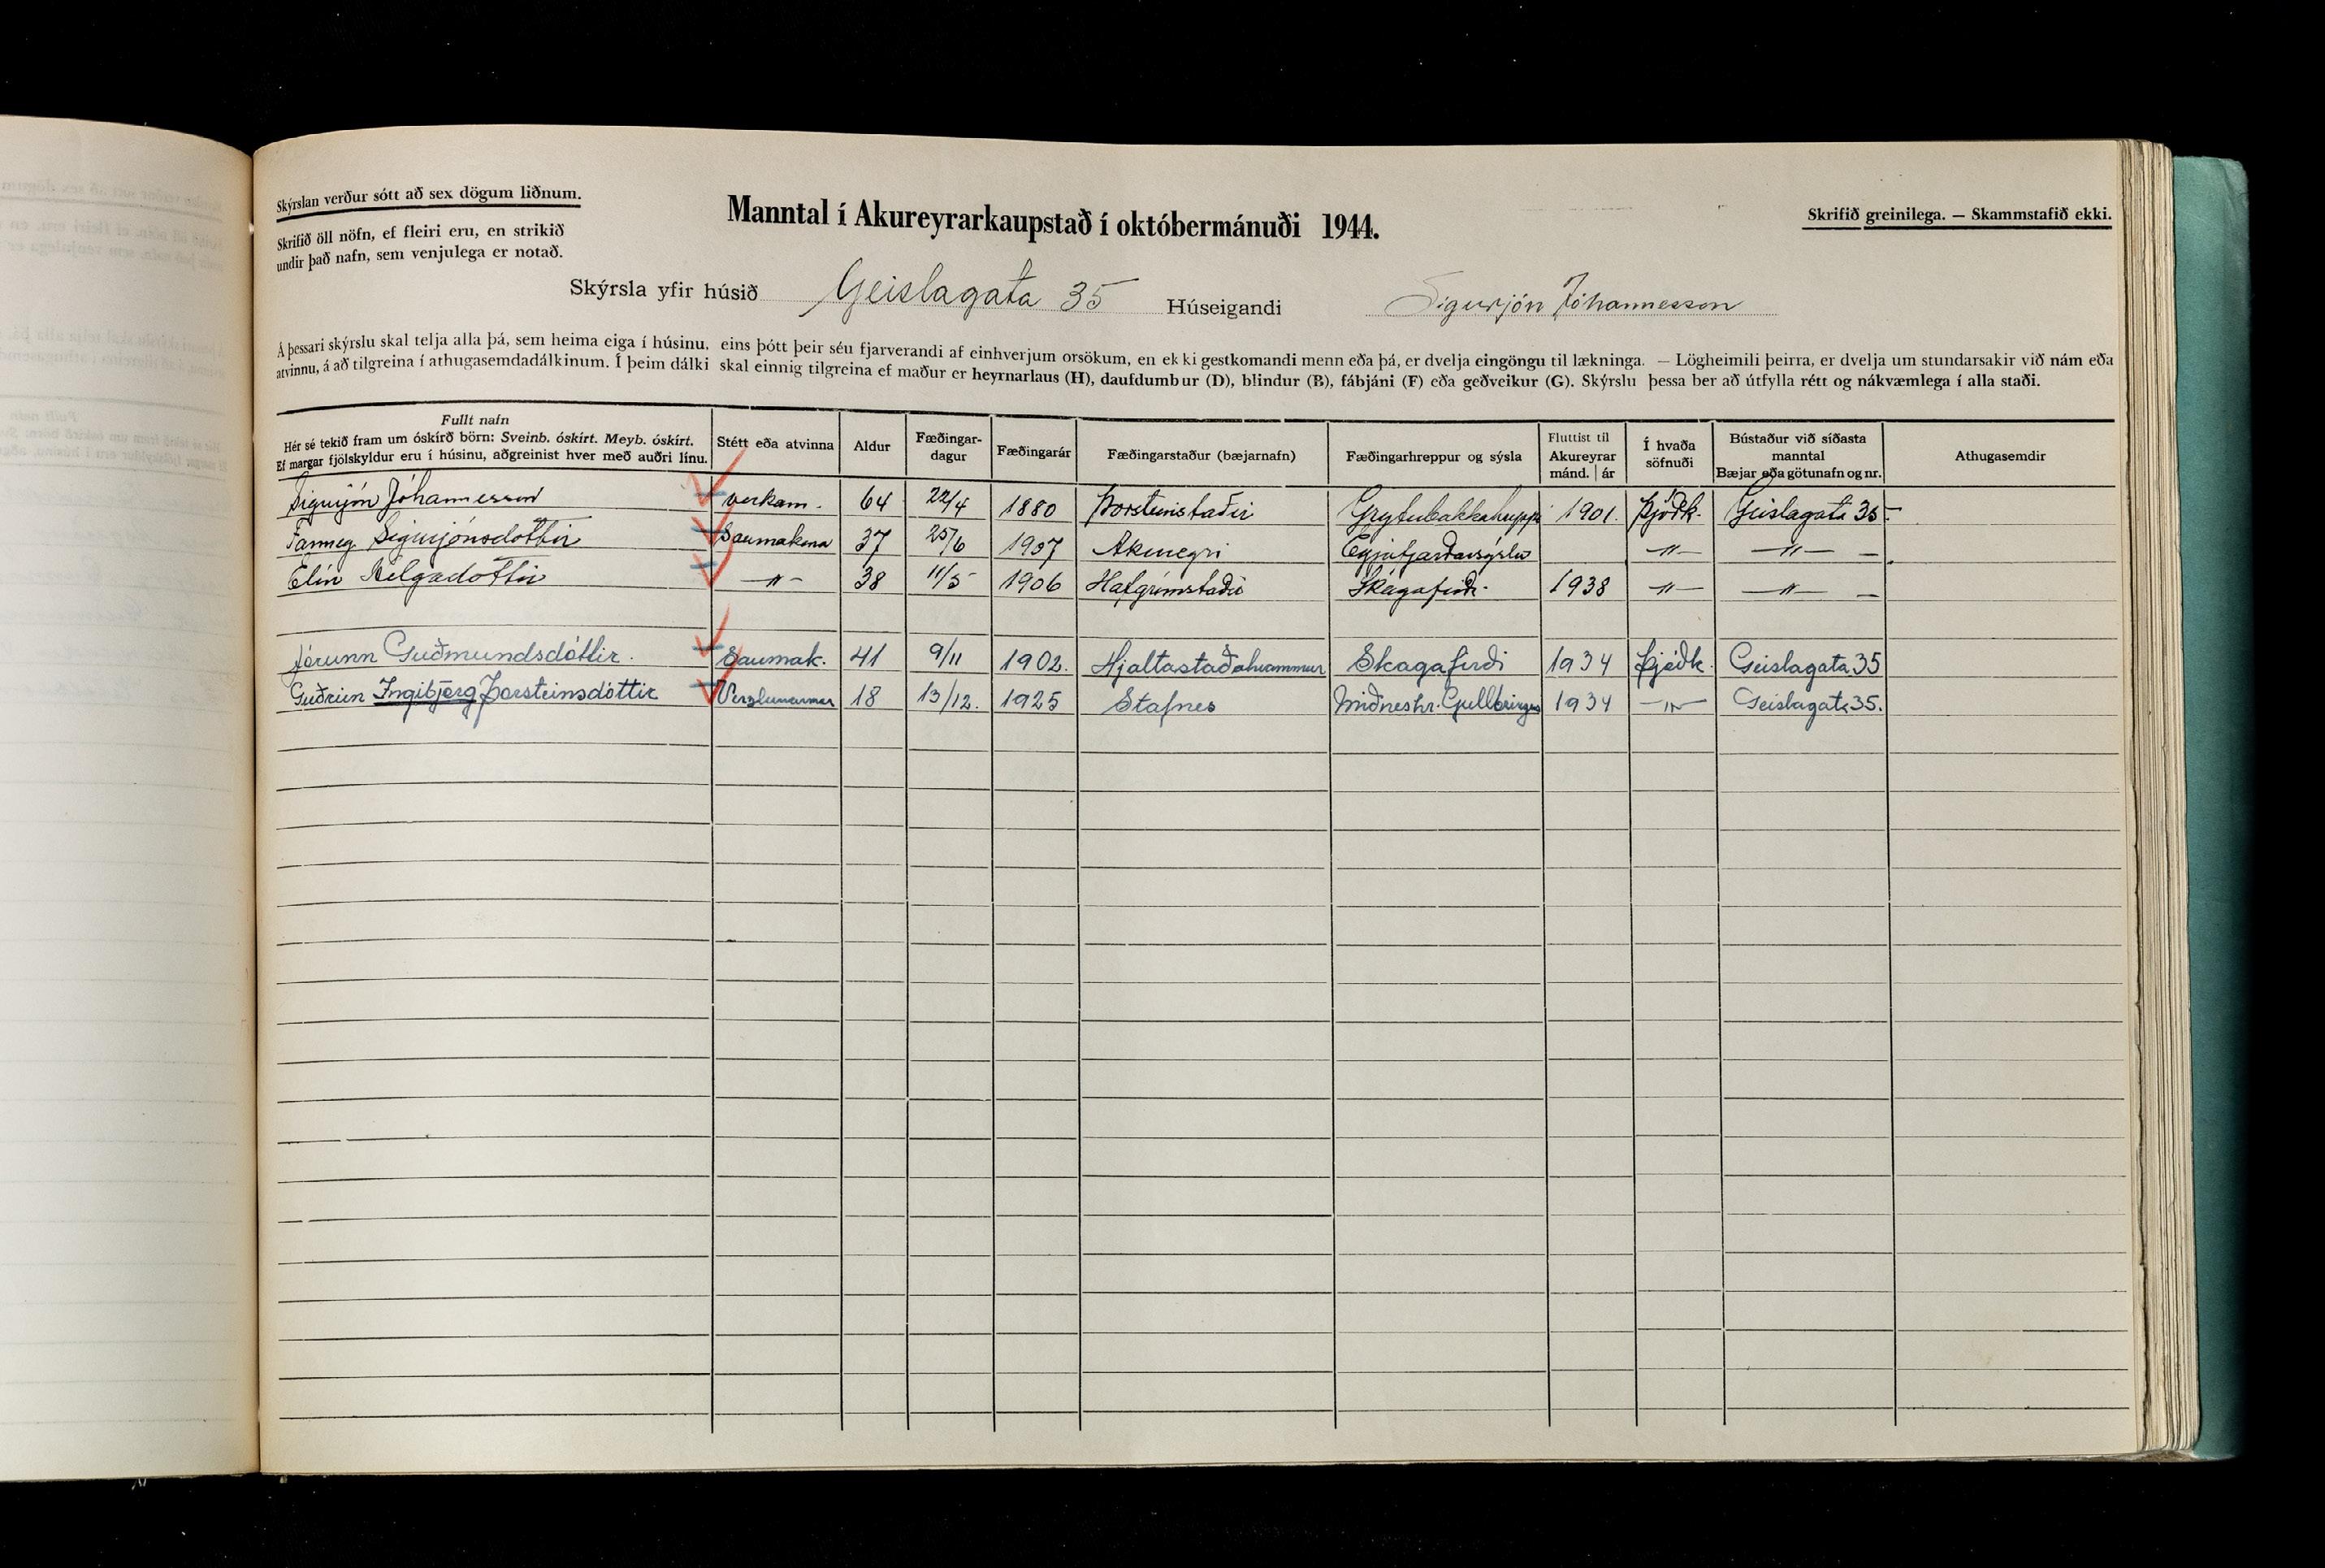 Skýrslan verður sótt að sex dögum liðnum.
Skrifið öll nöfn, ef fleiri eru, en strikið
undir það nafn, sem venjulega er notað.
Manntal í Akureyrarkaupstað í októbermánuði 1944.
Skrifið greinilega. — Skammstafið ekki.
Skýrsla yfir húsið Geislagata 35 Húseigandi Sigurjón Jóhannesson
Á þessari skýrslu skal telja alla þá, sem heima eiga í húsinu, eins þótt þeir séu fjarverandi af einhverjum orsökum, en ekki gestkomandi menn eða þá, er dvelja eingöngu til lækninga. — Lögheimili þeirra, er dvelja um stundarsakir við nám eða
atvinnu, á að tilgreina í athugasemdadálkinum. Í þeim dálki skal einnig tilgreina ef maður er heyrnarlaus (H), daufdumbur (D), blindur (B), fábjáni (F) eða geðveikur (G). Skýrslu þessa ber að útfylla rétt og nákvæmlega í alla staði.
Fullt nafn
Hér sé tekið fram um óskírð börn: Sveinb. óskírt. Meyb. óskírt.
Ef margar fjölskyldur eru í húsinu, aðgreinist hver með auðri línu.
Stétt eða atvinna
Aldur
Fæðingar-
dagur
Fæðingarár
Fæðingarstaður (bæjarnafn)
Fæðingarhreppur og sýsla
Fluttist til
Akureyrar
mánd. | ár
Í hvaða
söfnuði
Bústaður við síðasta
manntal
Bæjar eða götunafn og nr.
Athugasemdir
Sigurjón Jóhannesson verkam. 64 22/4 1880 Þorsteinstaðir Grytubakkahrepp 1901. Þjóðk. Geislagata 35-
Sigurjónsdóttir Saumakona 37 25/6 1907 Akureyri Eyjafjarðarsýslu -〃- -〃- -
Elín Helgadóttir -〃- 38 11/5 1906 Hafgrímstaðir Skagafirði- 1938 -〃- -〃- -
Jórunn Guðmundsdóttir. Saumak. 41 9/11 1902. Hjaltastaðahvammur Skagafirði 1934 Þjóðk. Geislagata 35
Guðrún Ingibjörg Þorsteinsdóttir 18 13/12. 1925 Stafnes Miðneshr. Gullbringus 1934 -〃- Geislagata 35.